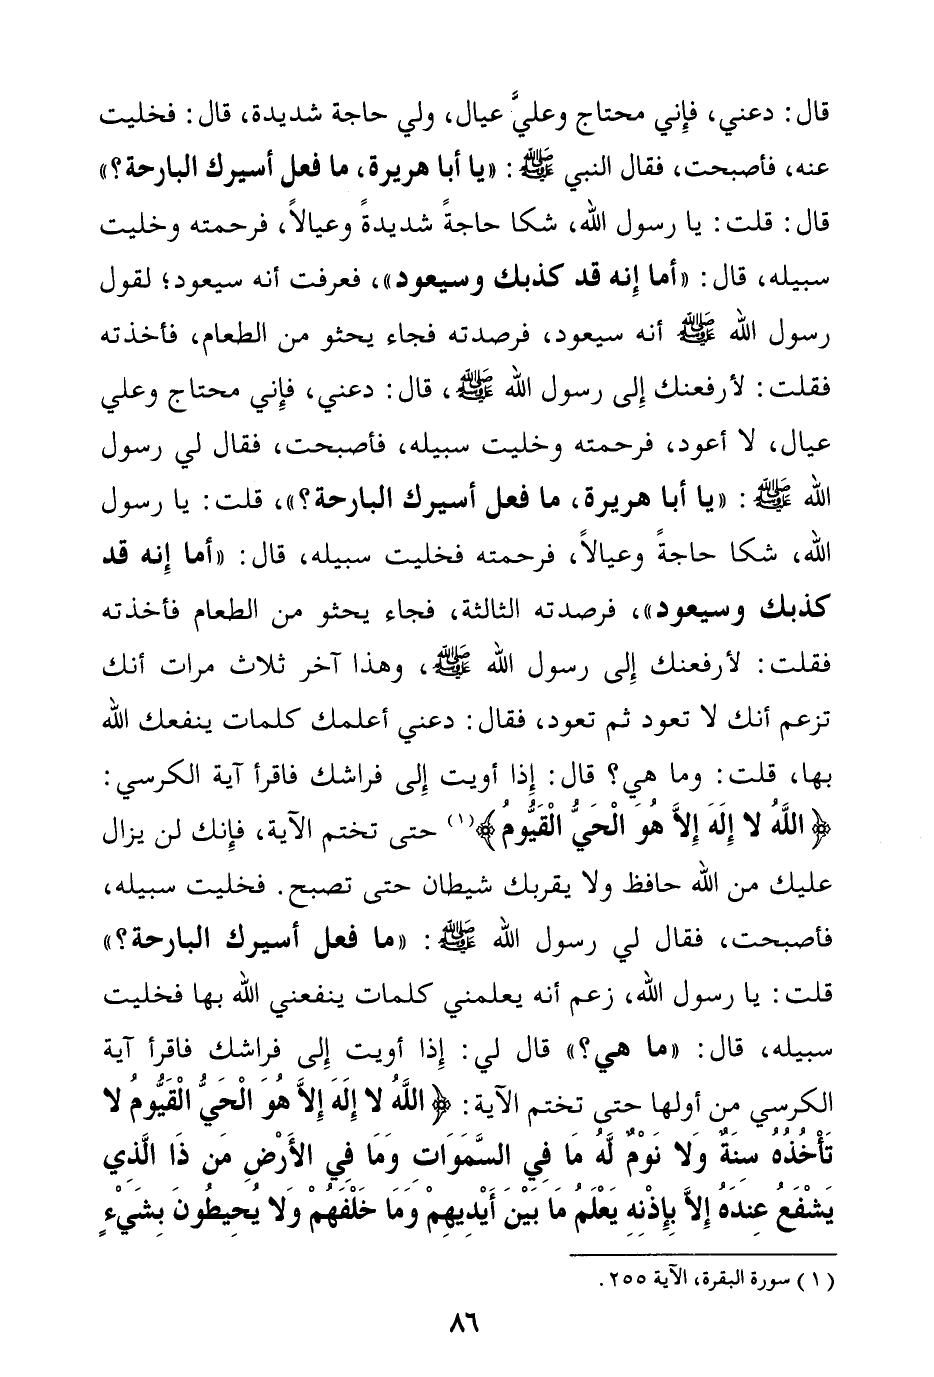 قال: دعني، فإني محتاج وعليَّ عيال، ولي حاجة شديدة، قال: فخليت
عنه، فأصبحت، فقال النبي ﷺ: «يا أبا هريرة، ما فعل أسيرك البارحة؟»
قال: قلت: يا رسول الله، شكا حاجةً شديدةً وعيالاً، فرحمته وخليت
سبيله، قال: «أما إنه قد كذبك وسيعود»، فعرفت أنه سيعود؛ لقول
رسول الله ﷺ أنه سيعود، فرصدته فجاء يحثو من الطعام، فأخذته
فقلت: لأرفعنك إلى رسول الله ﷺ، قال: دعني، فإني محتاج وعلي
عيال، لا أعود، فرحمته وخليت سبيله، فأصبحت، فقال لي رسول
الله ﷺ: «يا أبا هريرة، ما فعل أسيرك البارحة؟»، قلت: يا رسول
الله، شكا حاجةً وعيالاً، فرحمته فخليت سبيله، قال: «أما إنه قد
كذبك وسيعود»، فرصدته الثالثة، فجاء يحثو من الطعام فأخذته
فقلت: لأرفعنك إلى رسول الله ﷺ، وهذا آخر ثلاث مرات أنك
تزعم أنك لا تعود ثم تعود، فقال: دعني أعلمك كلمات ينفعك الله
بها، قلت: وما هي؟ قال: إذا أويت إلى فراشك فاقرأ آية الكرسي:
﴿اللَّهُ لا إِلَهَ إِلاَّ هُوَ الْحَيُّ الْقَيُّومُ﴾(١) حتى تختم الآية، فإنك لن يزال
عليك من الله حافظ ولا يقربك شيطان حتى تصبح. فخليت سبيله،
فأصبحت، فقال لي رسول الله ﷺ: «ما فعل أسيرك البارحة؟»
قلت: يا رسول الله، زعم أنه يعلمني كلمات ينفعني الله بها فخليت
سبيله، قال: «ما هي؟» قال لي: إذا أويت إلى فراشك فاقرأ آية
الكرسي من أولها حتى تختم الآية: ﴿اللَّهُ لا إِلَهَ إِلاَّ هُوَ الْحَيُّ الْقَيُّومُ لا
تَأْخُذُهُ سِنَةٌ وَلا نَوْمٌ لَّهُ مَا فِي السَّمَوَاتِ وَمَا فِي الأَرْضِ مَن ذَا الَّذِي
يَشْفَعُ عِندَهُ إِلاَّ بِإِذْنِهِ يَعْلَمُ مَا بَيْنَ أَيْدِيهِمْ وَمَا خَلْفَهُمْ وَلا يُحِيطُونَ بِشَيْءٍ
(١) سورة البقرة، الآية ٢٥٥.
٨٦